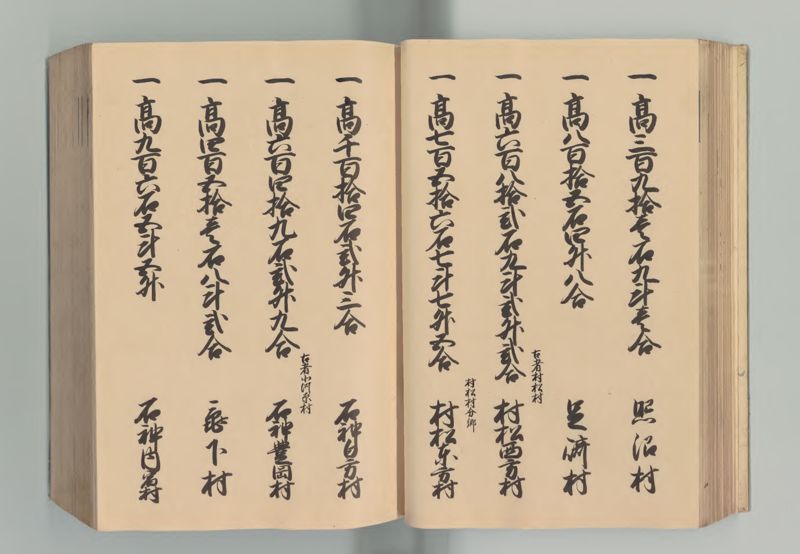 一高三百九拾壱石九斗壱合 照沼村
一高八百拾五石四升八合 足崎村
一高六百八拾弐石九斗弐升弐合 古者村松村 村松西方村
一高七百五拾六石七斗七升五合 村松村分郷 村松東方村
一高千百拾四石弐升三合 石神白方村
一高六百四拾九石弐升九合 古者 石神豊岡村
一高四百五拾壱石八斗弐合 亀下村
一高九百六石五斗五升 石神内宿村